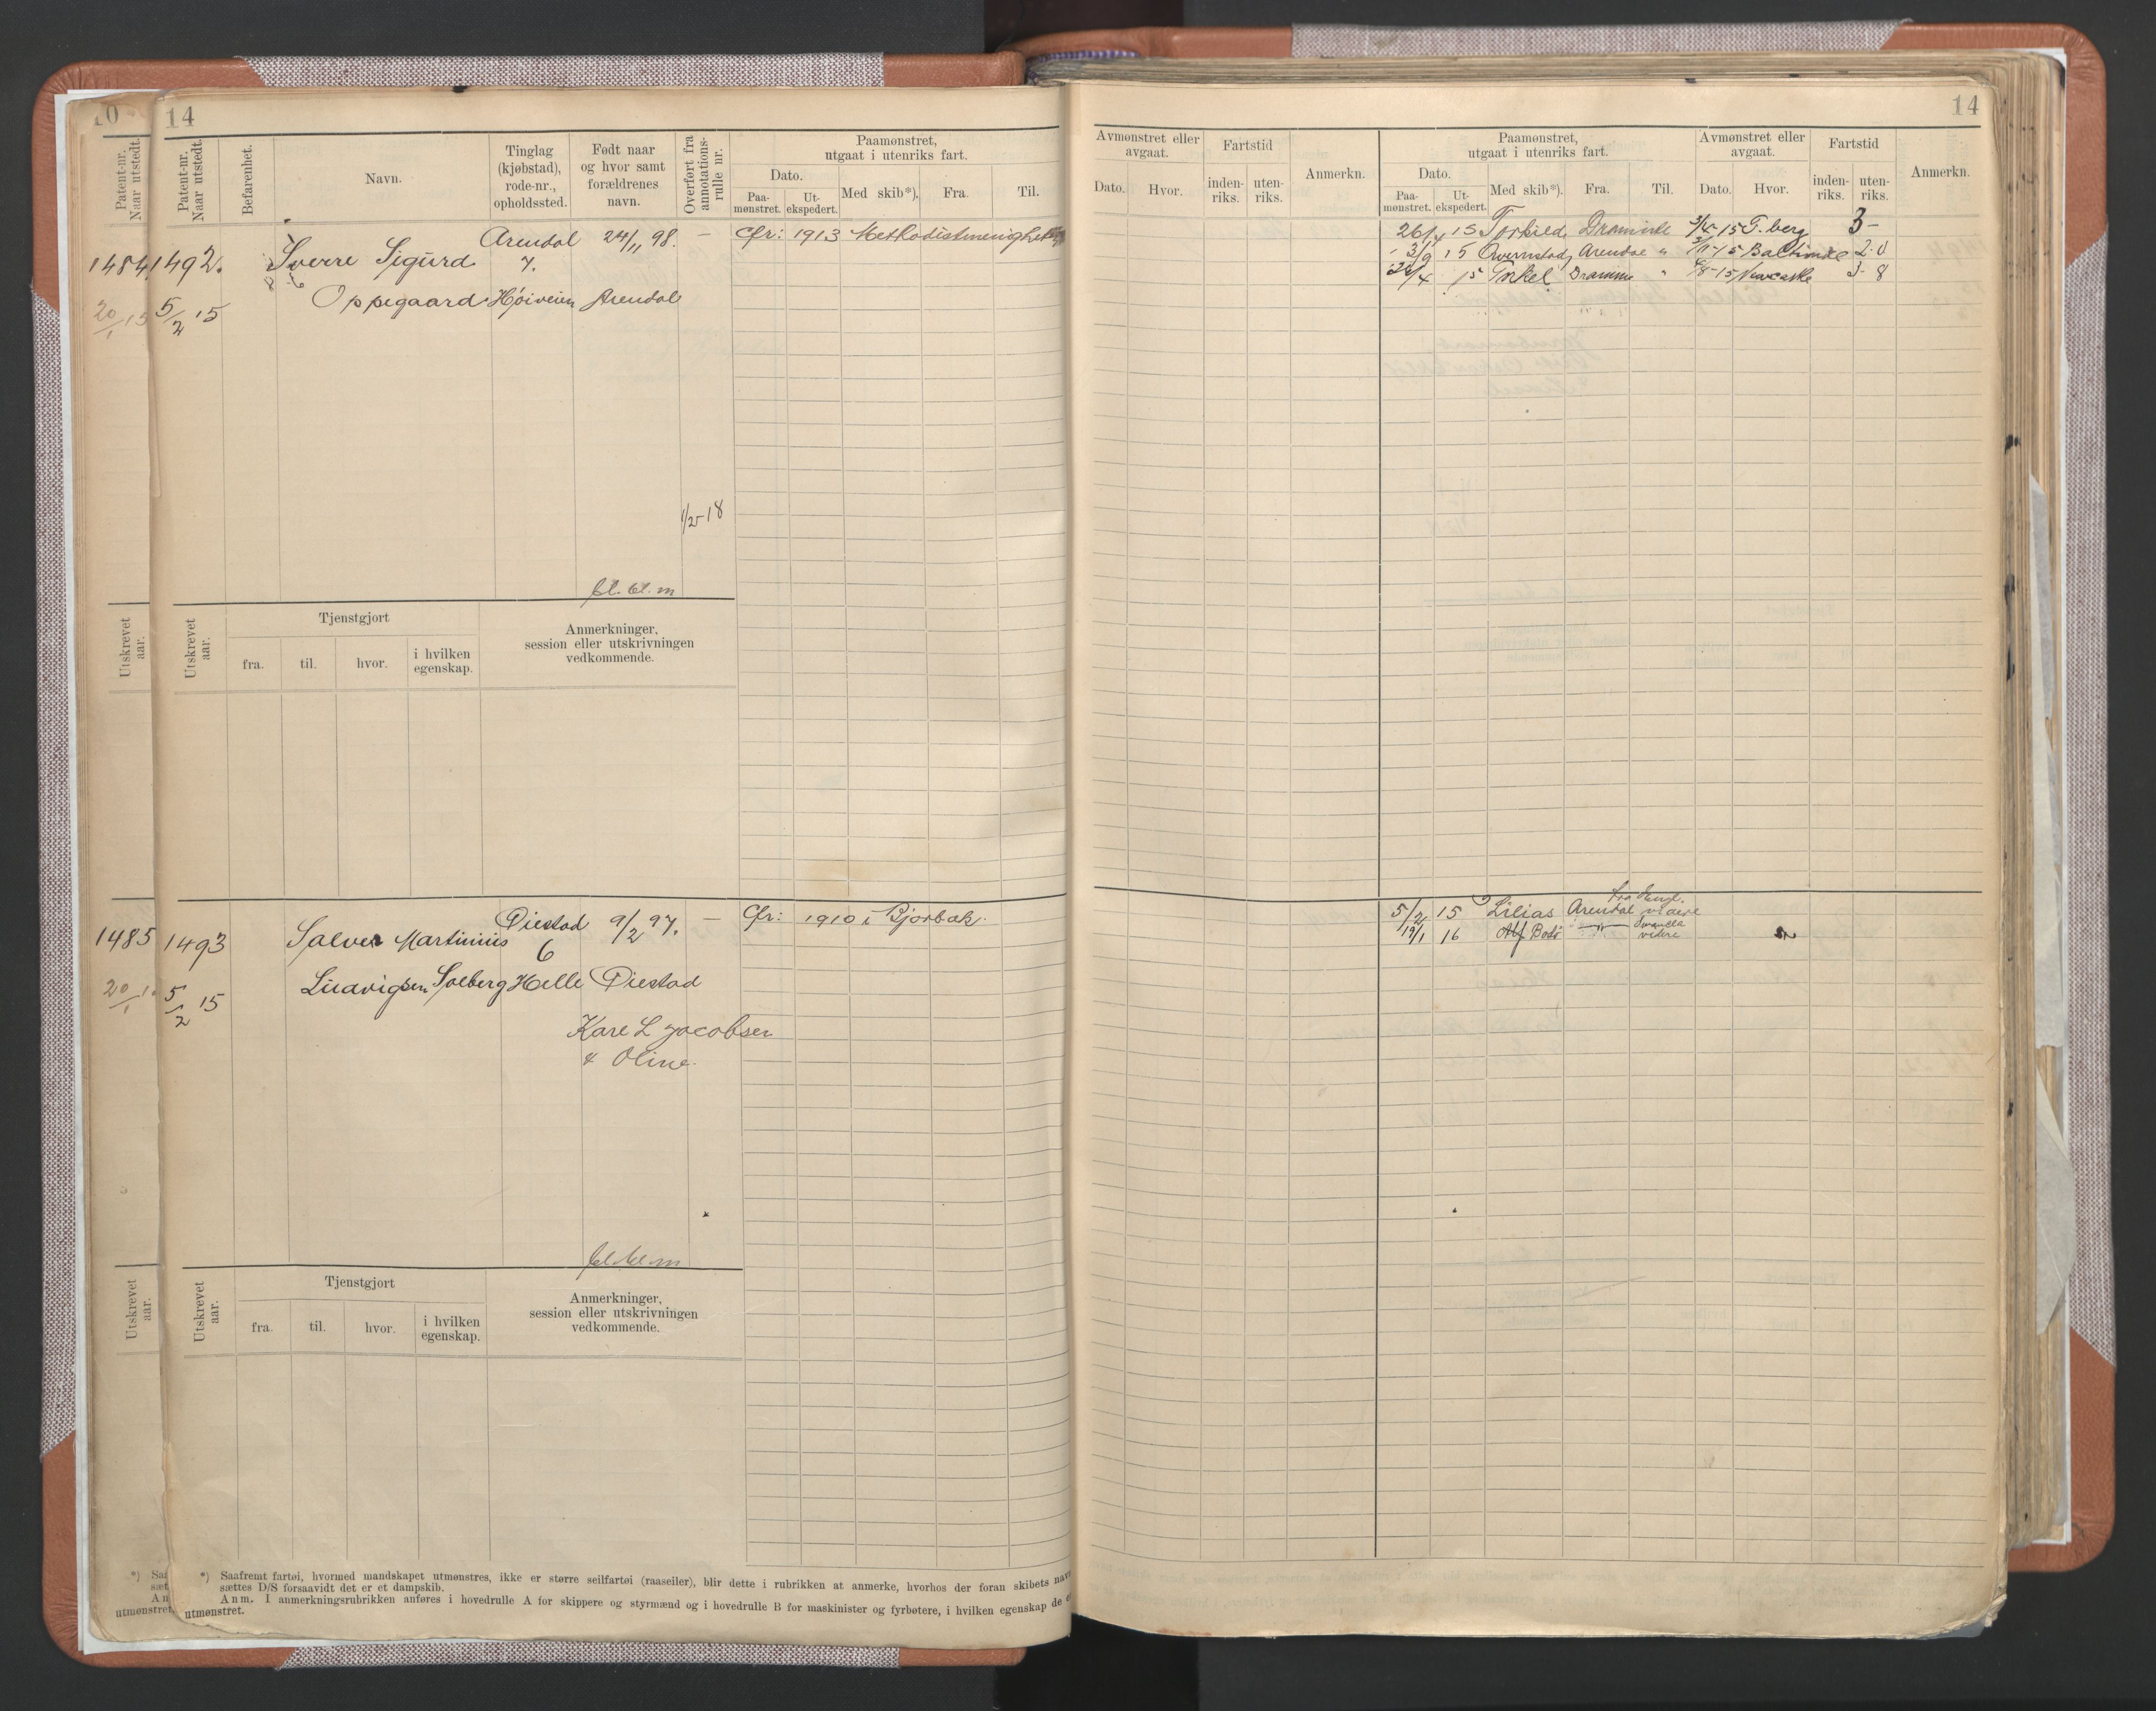 14
Patent-nr. Naar utstedt.
Befarenhet.
Navn.
Tinglag (kjøbstad), rode-nr., opholdssted.
Født naar og hvor samt forældrenes navn.
Overført fra annotations-rulle nr.
Paamønstret, utgaat i utenriks fart.
Dato.
Paa-mønstret.
Ut-ekspedert.
Med skib*).
Fra.
Til.
1492.
5/2 15
Sverre Sigurd
Oppegaard
Arendal
7.
Høiveien
24/11 98.
Arendal
—
Cfr: 1913 Methodistmenigheten
1/2 - 18
bl. bl. m
Utskrevet aar.
Tjenstgjort
fra.
til.
hvor.
i hvilken egenskap.
Anmerkninger, session eller utskrivningen vedkommende.
1493
5/2 15
Salve Martinius
Ludvigsen Solberg
Øiestad
6
Helle
9/2 97.
Øiestad
Kare L Jacobsen
& Oline.
—
Cfr: 1910 i Bjorbak.
bl bl m
Utskrevet aar.
Tjenstgjort
fra.
til.
hvor.
i hvilken egenskap.
Anmerkninger, session eller utskrivningen vedkommende.
*) Saafremt fartøi, hvormed mandskapet utmønstres, ikke er større seilfartøi (raaseiler), blir dette i rubrikken at anmerke, hvorhos der foran skibets navn
sættes D/S forsaavidt det er et dampskib.
Anm. I anmerkningsrubrikken anføres i hovedrulle A for skippere og styrmænd og i hovedrulle B for maskinister og fyrbøtere, i hvilken egenskap de er
utmønstret.
10
Patent-nr. Naar utstedt.
1484
20/1 15
Utskrevet aar.
1485
20/1
Utskrevet aar.
14
Avmønstret eller avgaat.
Dato.
Hvor.
Fartstid
inden-riks.
uten-riks.
Anmerkn.
Paamønstret, utgaat i utenriks fart.
Dato.
Paa-mønstret.
Ut-ekspedert.
Med skib*).
Fra.
Til.
Avmønstret eller avgaat.
Dato.
Hvor.
Fartstid
inden-riks.
uten-riks.
Anmerkn.
15 Torkild T.berg 3-
3/9 15 Arendal " Baltimore 2.0
15 Torkel Dramm " 15 Newcastle 3- 8
5/2 15 Lilias Arendal fra Engl. videre
19/1 16 Alf Bodø " videre